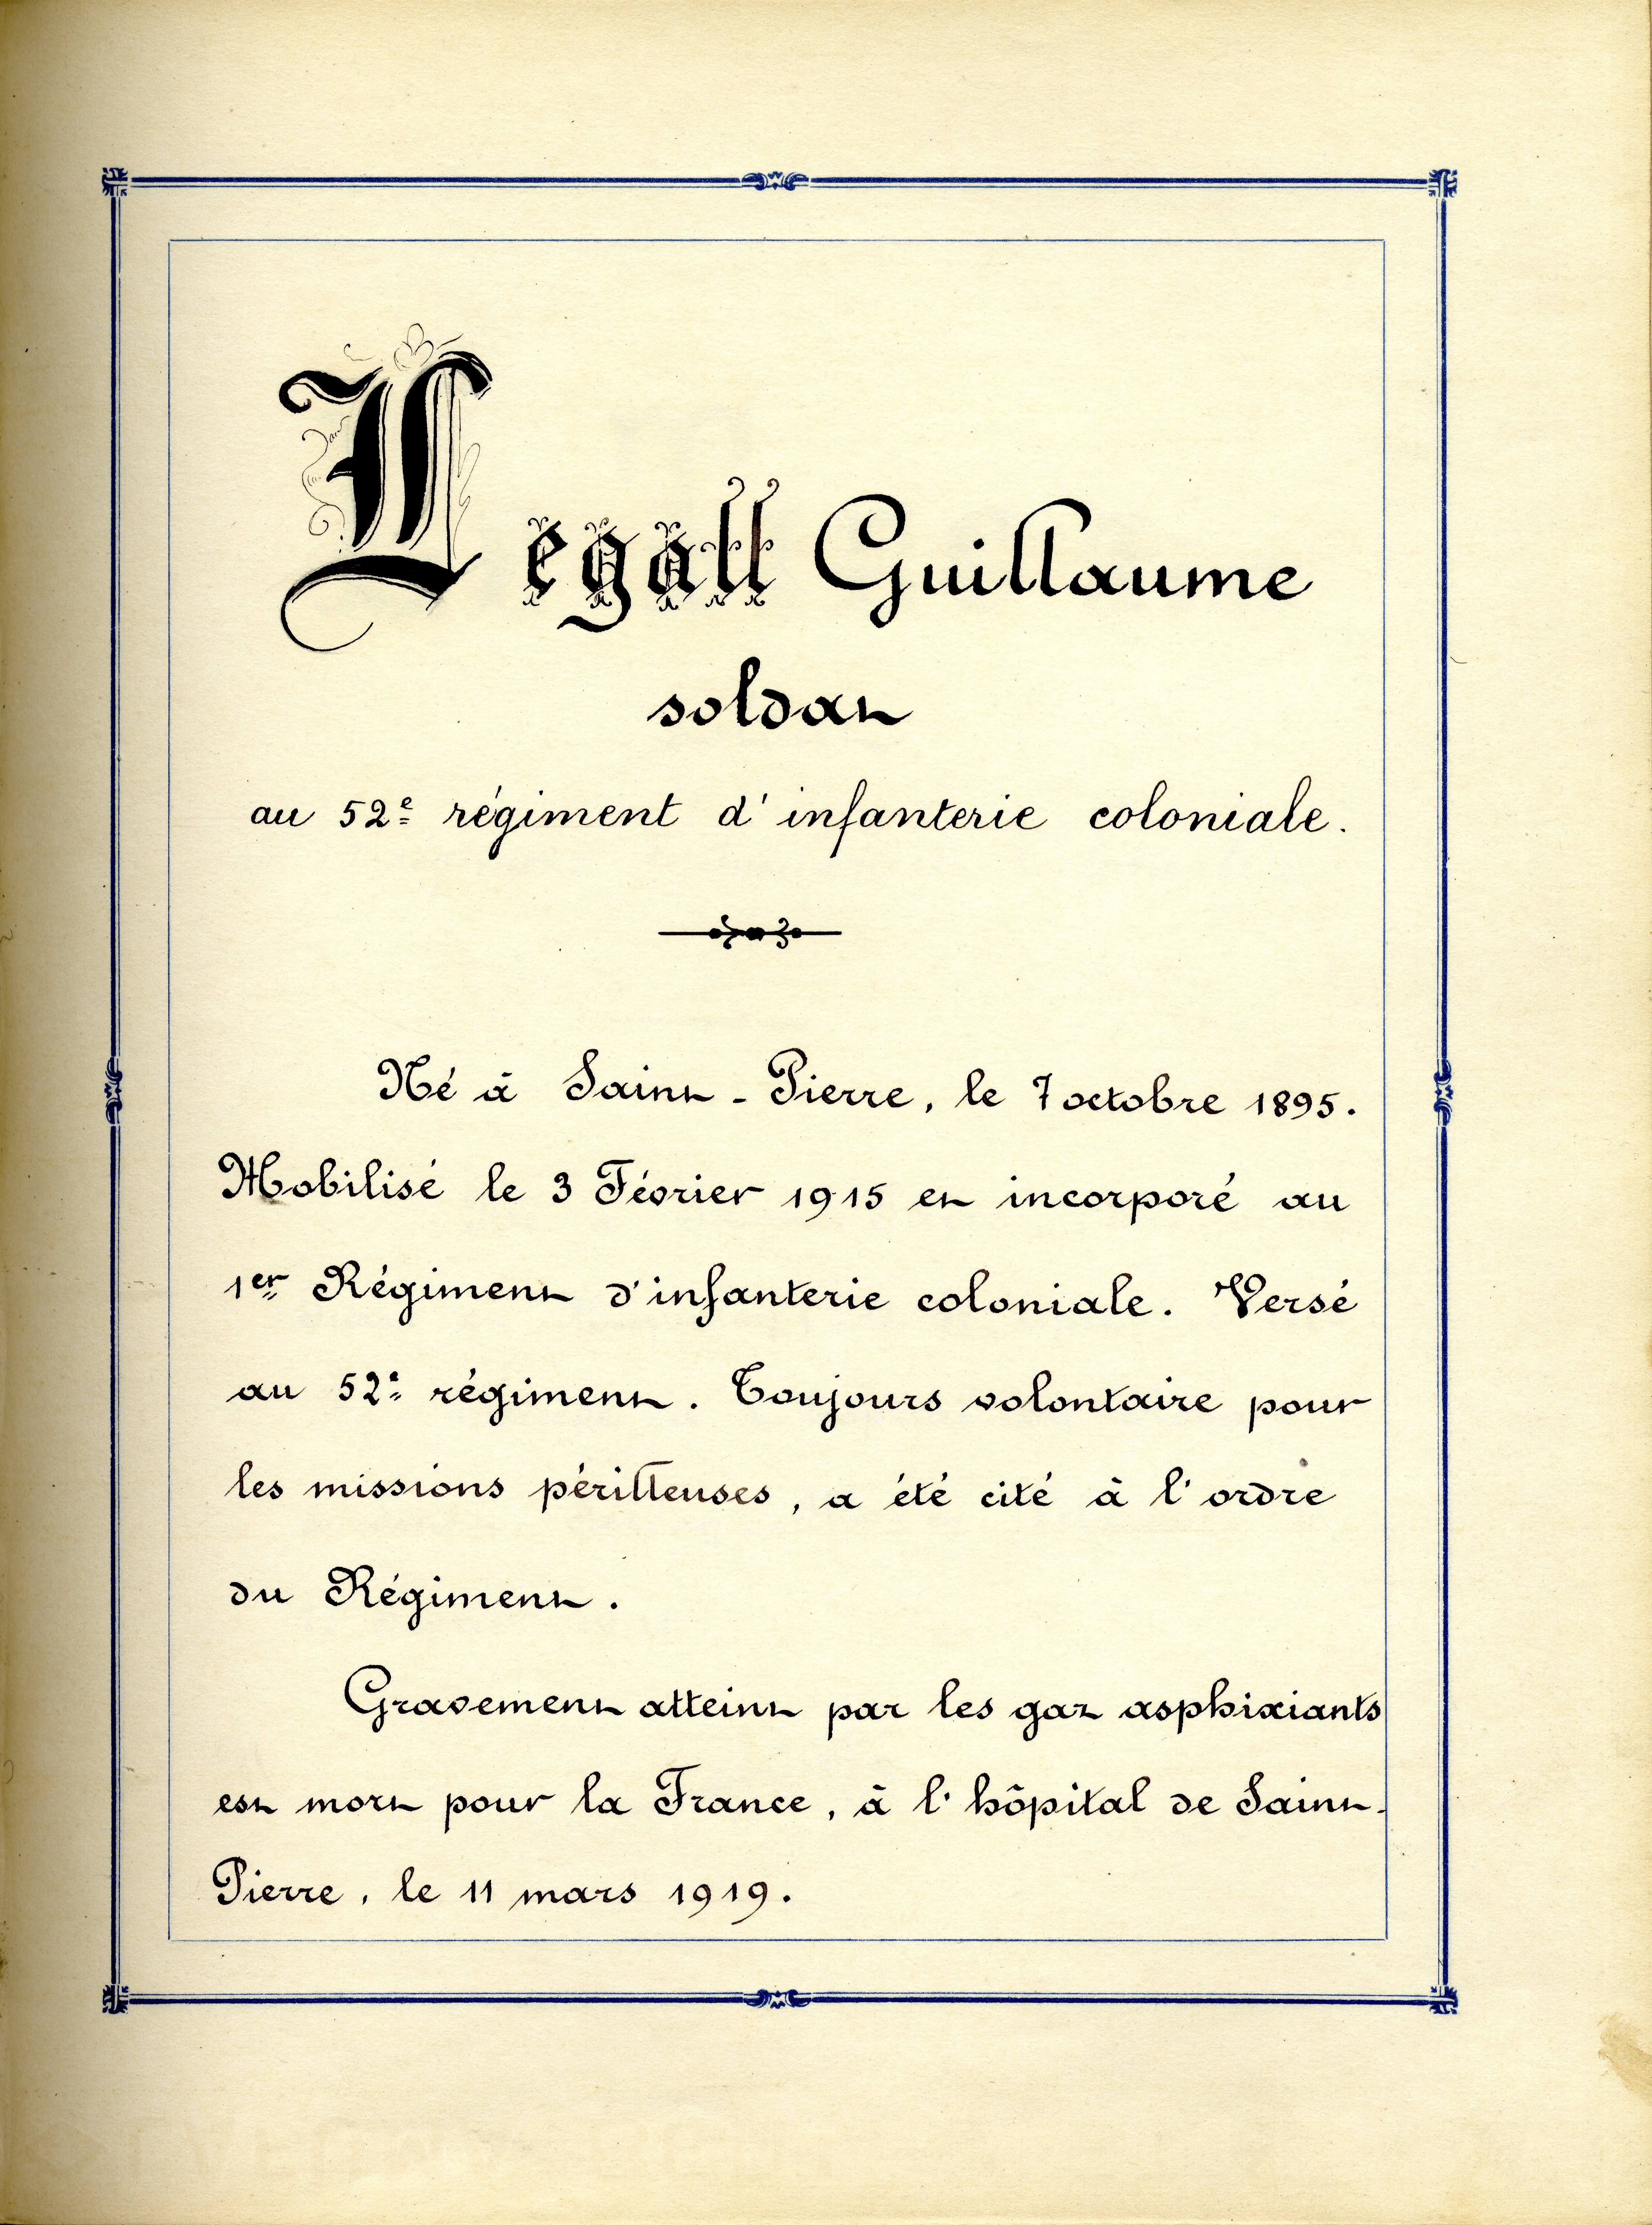 Legall Guillaume
soldat
au 52e régiment d'infanterie coloniale.
Né à Saint-Pierre, le 7 octobre 1895.
Mobilisé le 3 Février 1915 et incorporé au
1er Régiment d'infanterie coloniale. Versé
au 52e régiment. Toujours volontaire pour
les missions périlleuses, a été cité à l'ordre
du Régiment.
Gravement atteint par les gaz asphixiants
est mort pour la France, à l'hôpital de Saint-
Pierre, le 11 mars 1919.